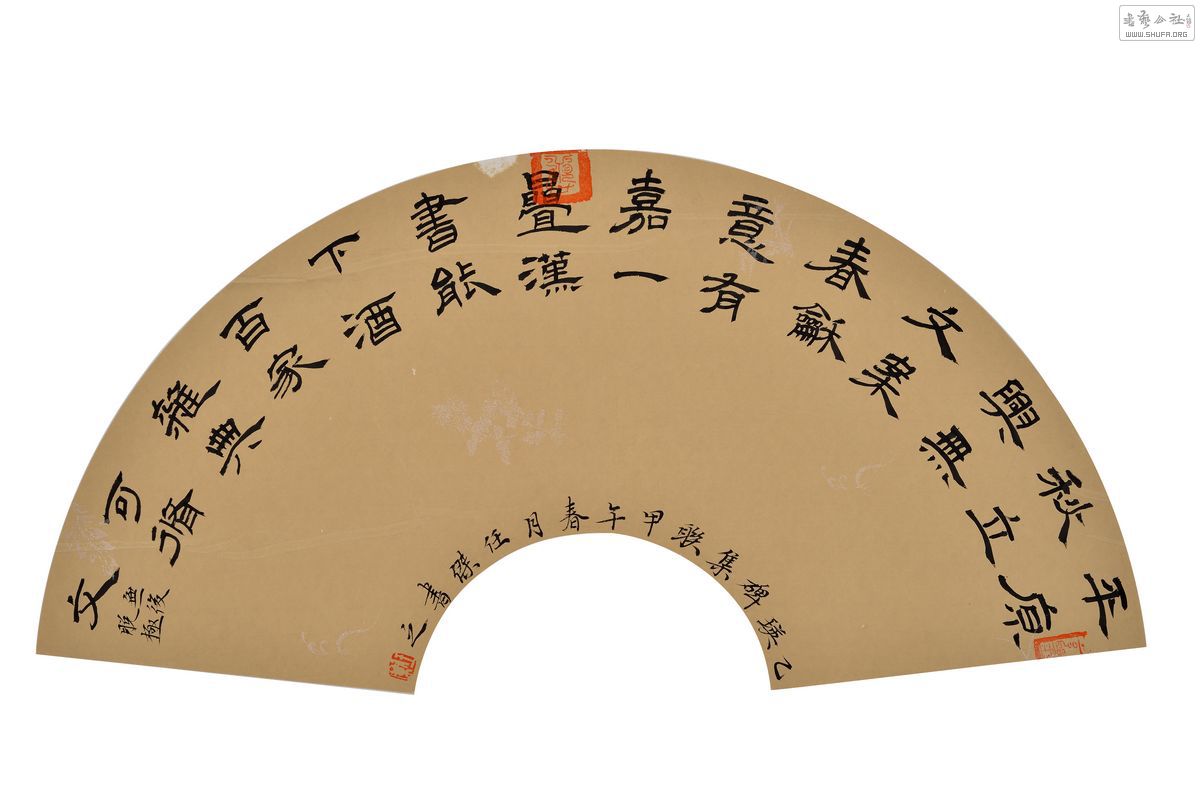 平原
秋立
興無
文案
春龢
意有
嘉一
疊漢
書能
下酒
百家
雜典
可循
文
後極
無脫
乙瑛碑集聯甲午春月任傑書之
WWW.SHUFA.ORG